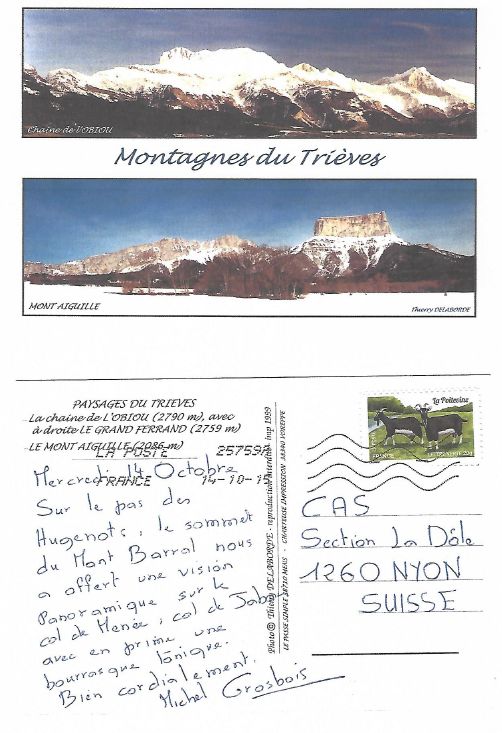 Chaîne de l'OBIOU
Montagnes du Trièves
MONT AIGUILLE
Thierry DELABORDE
PAYSAGES DU TRIEVES
La chaine de L'OBIOU (2790 m), avec
à droite LE GRAND FERRAND (2759 m)
LE MONT AIGUILLE (2086 m)
LA POSTE 25759A
FRANCE 14-10-15
Mercredi 14 Octobre
Sur le pas des
Hugenots, le sommet
du Mont Barral nous
a offert une vision
Panoramique sur le
col de Menée, col de Jabou
avec en prime une
bourrasque tonique.
Bien cordialement.
Michel Grosbois
Photo © Thierry DELABORDE - reproduction interdite. imp 1999
LE PASSE SIMPLE 38710 MENS - CHARTEUSE IMPRESSION 38340 VOREPPE
La Poitevine
FRANCE
CAS
Section La Dôle
1260 NYON
SUISSE